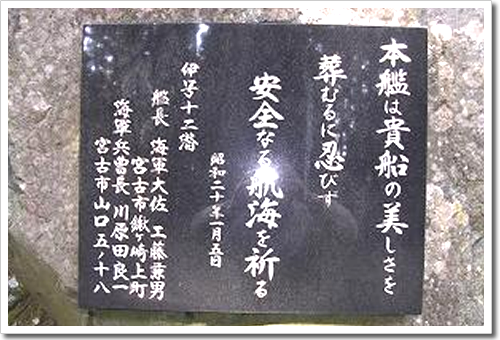 本艦は貴船の美しさを
葬むるに忍びず
安全なる航海を祈る
昭和二十年一月五日
伊号十二潜
艦長 海軍大佐 工藤兼男
宮古市鍬ヶ崎上町
海軍兵曹長 川原田良一
宮古市山口五ノ十八